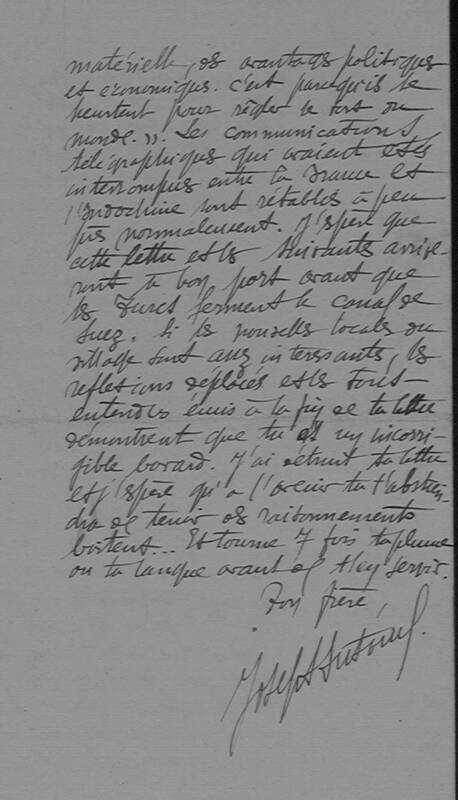 matérielle, des avantages politiques
et économiques. C'est parcequ'ils se
heurtent pour régler le sort du
monde. ». Les communications
télégraphiques qui avaient étés
interrompues entre la France et
l'Indochine sont rétablies à peu
près normalement. J'espère que
cette lettre et les suivantes arrive-
ront à bon port avant que
les Turcs ferment le canal de
Suez. Si les nouvelles locales du
village sont assez interessantes, les
reflexions déplacés et les sous-
entendus émis à la fin de ta lettre
démontrent que tu es un incorri-
gible bavard. J'ai détruit ta lettre
et j'espère qu'a l'avenir tu t'abstien-
dra de tenir des raisonnements
boiteux... Et tourne 7 fois ta plume
ou ta langue avant de t'en servir.
Ton frère,
Joseph